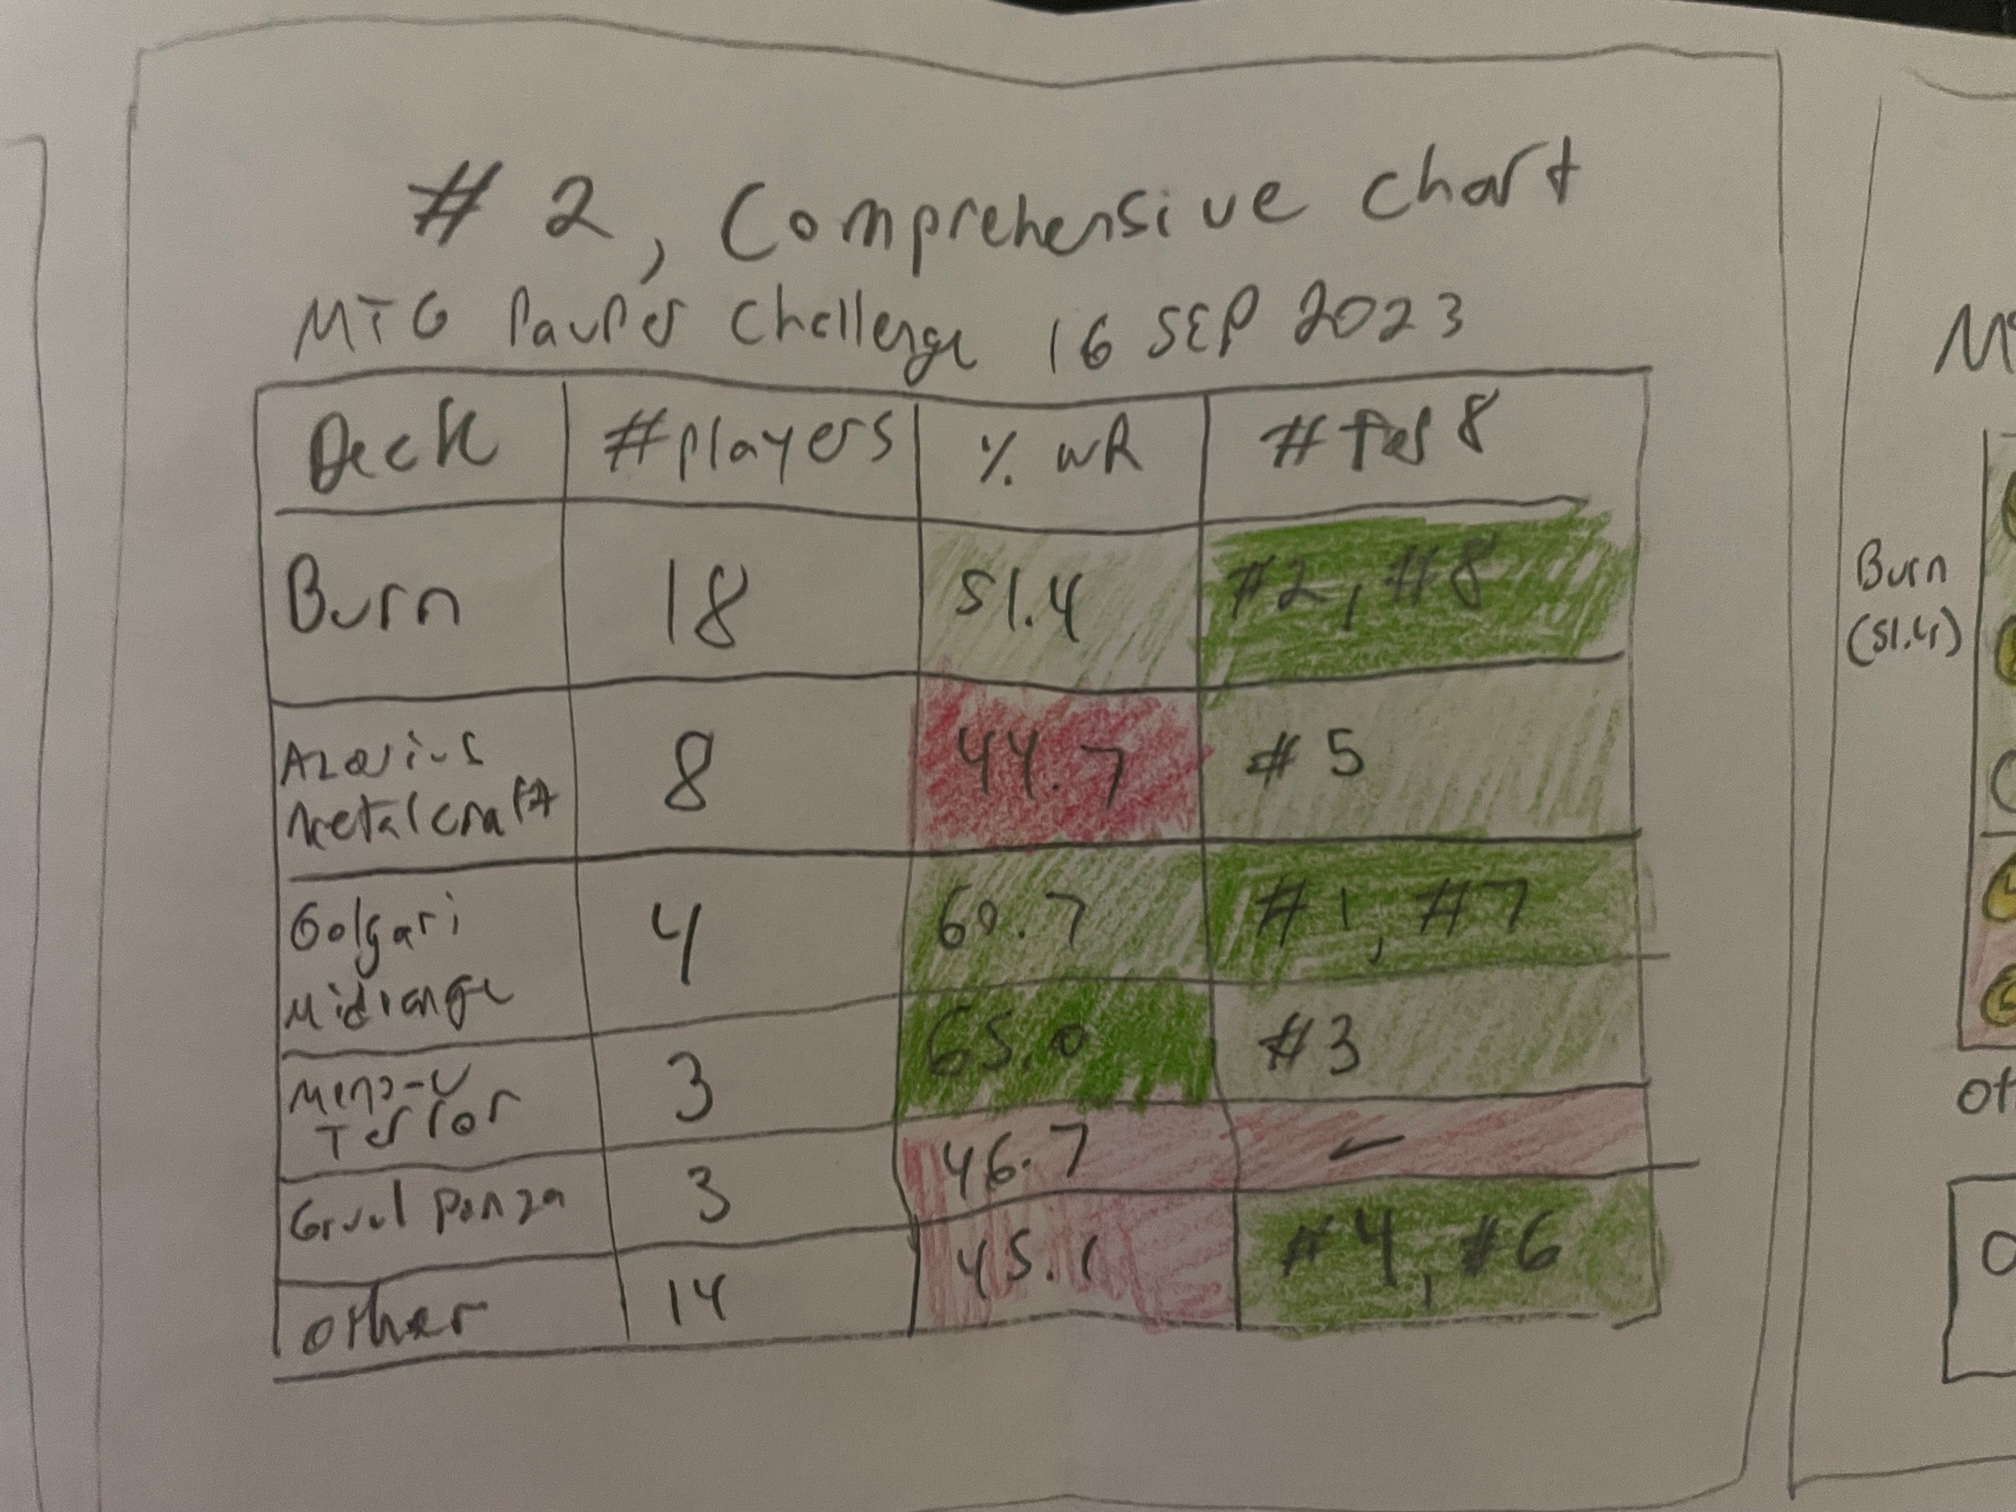 # 2, Comprehensive chart
MTG Pauper Challenge 16 SEP 2023
Deck #players % WR # Top 8
Burn 18 51.4 #2, #8
Azorius
Metalcraft 8 44.7 #5
Golgari
Midrange 4 60.7 #1, #7
Mono-U
Terror 3 65.0 #3
Gruul Ponza 3 46.7 -
other 14 45.1 #4, #6
Burn
(51.4)